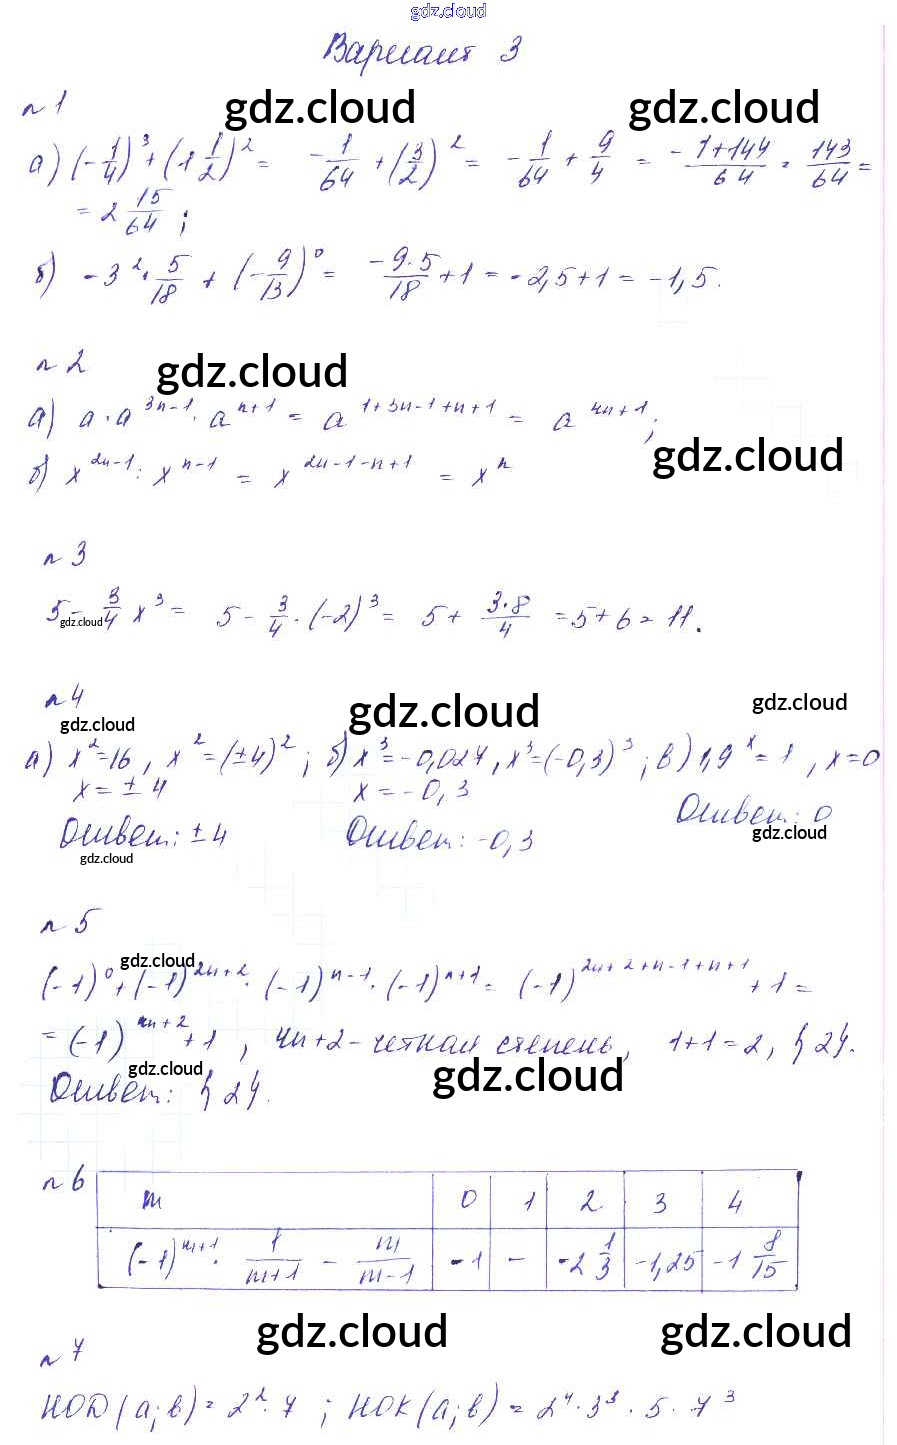 gdz.cloud
Вариант 3
n 1
gdz.cloud gdz.cloud
а) (-1/4)^3 + (1 1/2)^2 = -1/64 + (3/2)^2 = -1/64 + 9/4 = (-1+144)/64 = 143/64 =
= 2 15/64 ;
б) -3^2 · 5/18 + (-9/13)^0 = (-9·5)/18 + 1 = -2,5+1 = -1,5.
n 2
gdz.cloud
а) a · a^(3n-1) · a^(n+1) = a^(1+3n-1+n+1) = a^(4n+1) ;
gdz.cloud
б) x^(2n-1) : x^(n-1) = x^(2n-1-n+1) = x^n
n 3
5 - 3/4 x^3 = 5 - 3/4 · (-2)^3 = 5 + (3·8)/4 = 5+6 = 11.
gdz.cloud
n 4
gdz.cloud gdz.cloud gdz.cloud
а) x^2=16 , x^2=(±4)^2 ; б) x^3=-0,027 , x^3=(-0,3)^3 ; в) 1,9^x=1 , x=0
x = ± 4 x = -0,3
Ответ: ± 4 Ответ: -0,3 Ответ: 0
gdz.cloud gdz.cloud
n 5
gdz.cloud
(-1)^0 + (-1)^(2n+2) · (-1)^(n-1) · (-1)^(n+1) = (-1)^(2n+2+n-1+n+1) + 1 =
= (-1)^(4n+2) + 1 , 4n+2 - четная степень, 1+1=2, {2}.
gdz.cloud gdz.cloud
Ответ: {2}.
n 6
m 0 1 2 3 4
(-1)^(m+1) · 1/(m+1) - m/(m-1) -1 - -2 1/3 -1,25 -1 8/15
gdz.cloud gdz.cloud
n 7
НОД (a; b) = 2^2 · 7 ; НОК (a; b) = 2^4 · 3^3 · 5 · 7^3